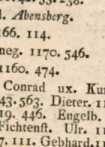 Abensberg.
166. 114.
neg. 1170. 546.
1160. 474.
Conrad ux. Kun
43. 563. Dieter. 11
19. 446. Engelb.
Fichtenst. Ulr. 11
7. 111. Gebhard.